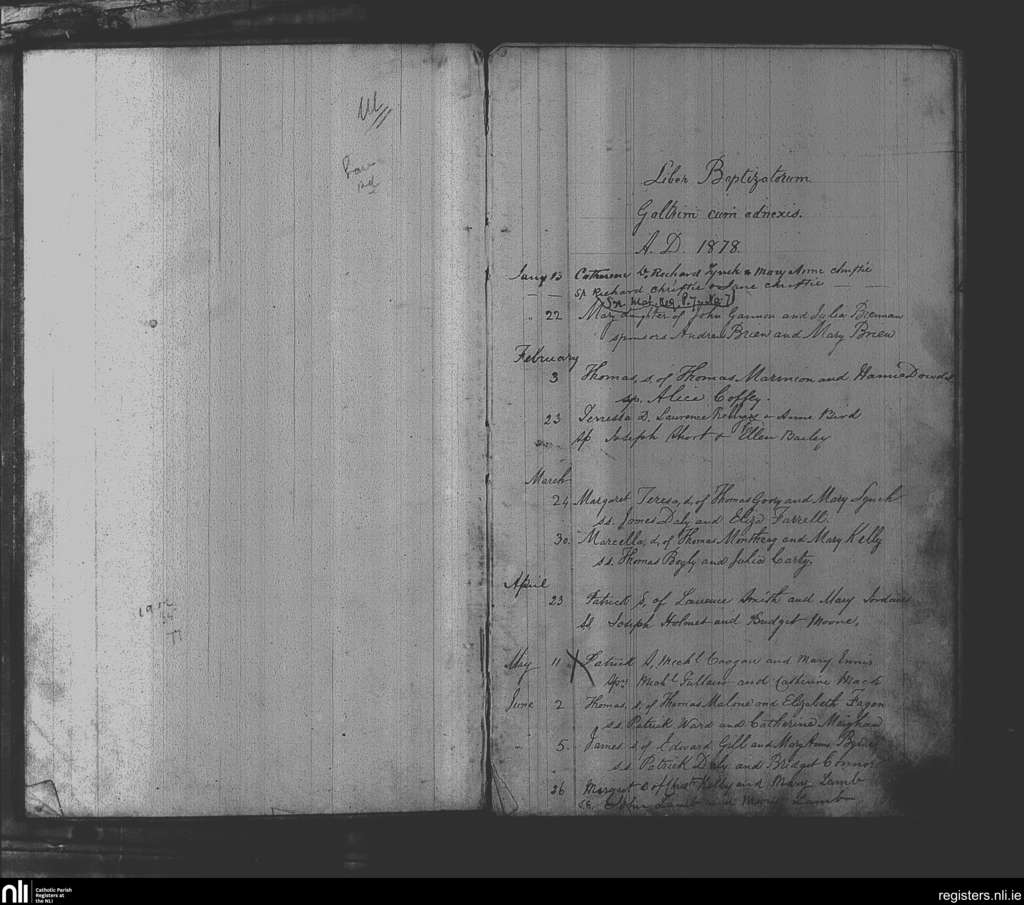 Liber Baptizatorum
Galtrim cum adnexis.
A.D. 1878.
Jany 13 Catherine D. Richard Lynch & Mary Anne Christie
— — Sp Richard Christie & Jane Christie — —
" 22 Mary daughter of John Gannon and Julia
sponsors Andrew Brien and Mary Brien
February
3 Thomas, s. of Thomas and
sp. Alice Coffey.
23 Terressa D. Laurence & Anne Bird
Sp Joseph Short & Ellen Barley
March
24 Margaret Teresa, d, of Thomas and Mary Lynch
ss. James Daly and Eliza Farrell.
30. Marcella, d, of Thomas and Mary Kelly
ss. Thomas and Julia Carty.
April
23 Patrick S, of Laurence Smith and Mary
SS Joseph Holmes and Bridget Moone,
May 11 X Patrick S, Mich^l Coogan and Mary Ennis
Sps Mich^l and Catherine Mack
June 2 Thomas, s, of Thomas Malone and Elizabeth Fagan
ss. Patrick Ward and Catherine Meighan
" 5. James s. of Edward Gill and Mary Anne
ss. Patrick Daly and Bridget Connor
26 Margret D of Kelly and Mary Lamb
SS. John Lamb and Mary Lamb
nli
Catholic Parish
Registers at
the NLI
registers.nli.ie